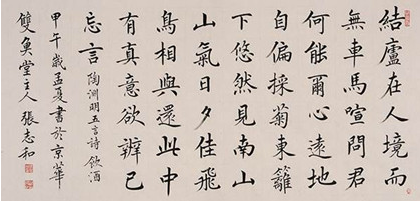 結廬在人境而
無車馬喧問君
何能爾心遠地
自偏採菊東籬
下悠然見南山
山氣日夕佳飛
鳥相與還此中
有真意欲辨已
忘言 陶淵明五言詩飲酒
甲午歲孟夏書於京華
雙魚堂主人張志和